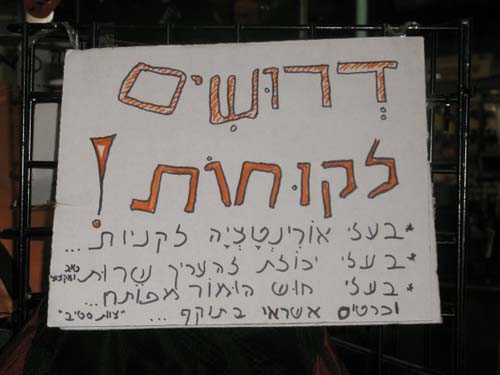 דְרוּשִׁים
לקוחות!
*בעלי אוֹרְיֶנְטָצְיָה לקניות...
*בעלי יכולת להעריך שֵׁרוּת טוב ומקצועי
*בעלי חוש הומור מפותח...
וכרטיס אשראי בתוקף... "צוות סטיב"